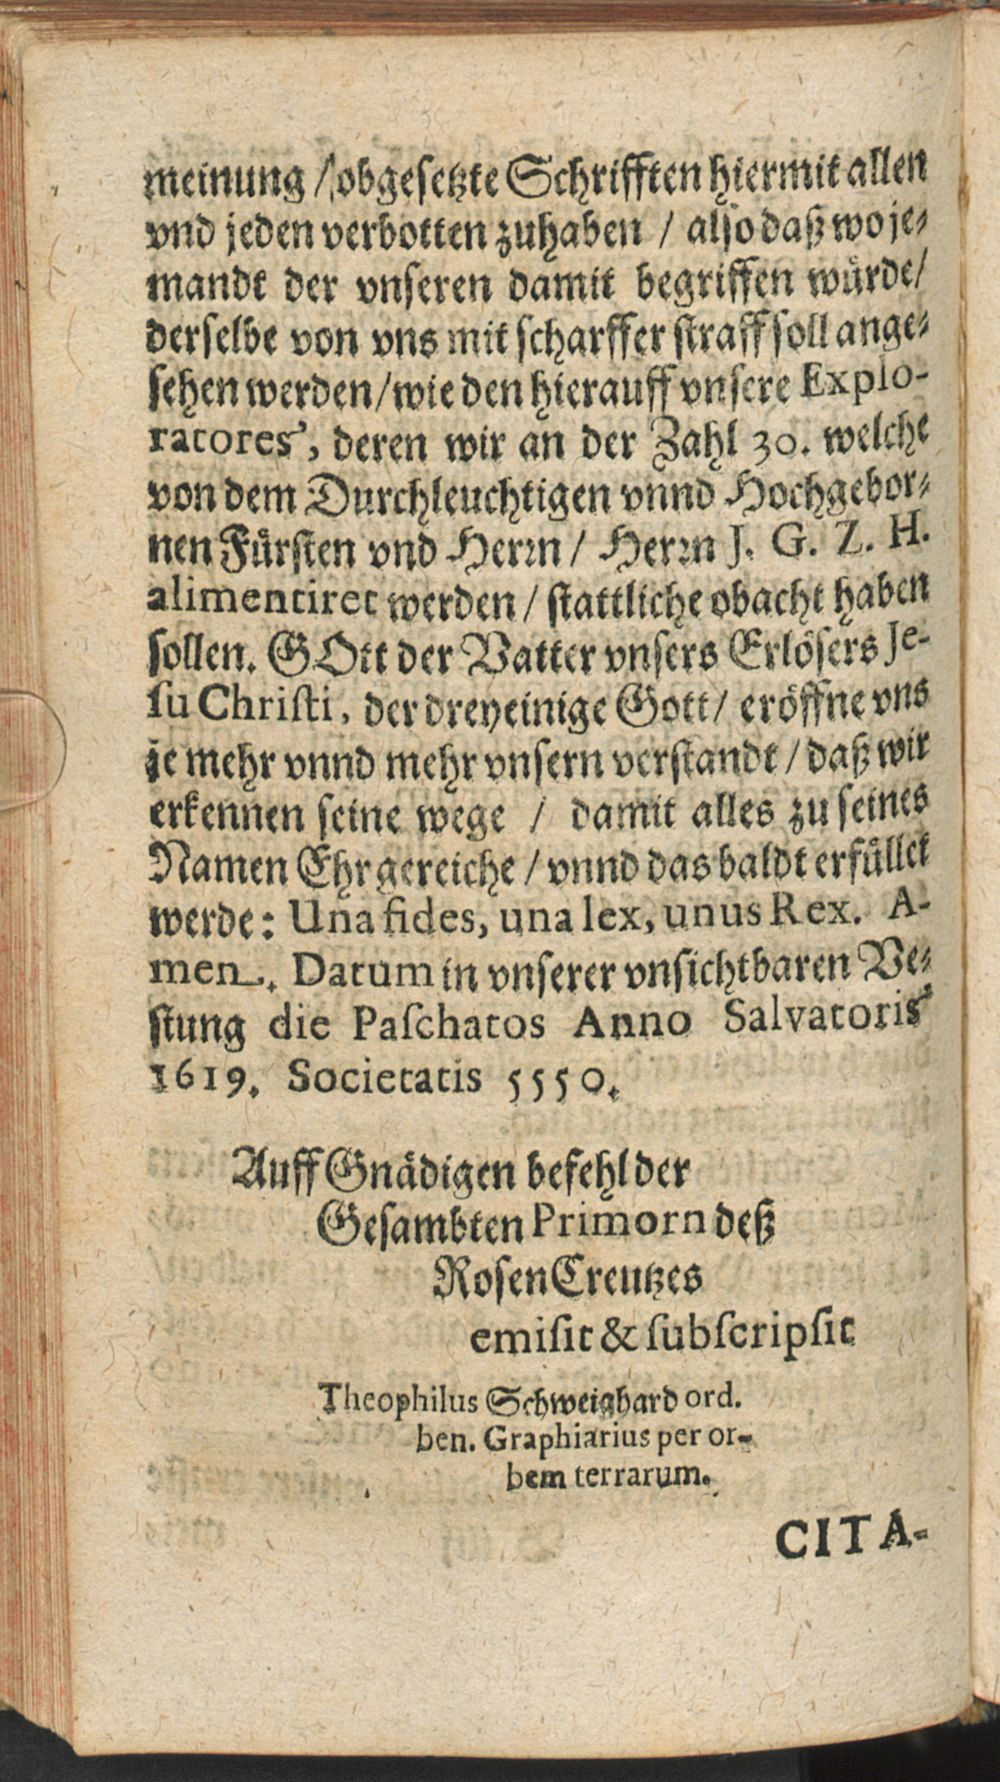 meinung / obgesetzte Schrifften hiermit allen
vnd jeden verbotten zuhaben / also daß wo je-
mandt der vnseren damit begriffen würde/
derselbe von vns mit scharffer straff soll ange-
sehen werden/wie den hierauff vnsere Explo-
ratores, deren wir an der Zahl 30. welche
von dem Durchleuchtigen vnnd Hochgebor-
nen Fürsten vnd Herrn / Herrn J. G. Z. H.
alimentiret werden / stattliche obacht haben
sollen. GOtt der Vatter vnsers Erlösers Je-
su Christi, der dreyeinige Gott/ eröffne vns
je mehr vnnd mehr vnsern verstandt / daß wir
erkennen seine wege / damit alles zu seines
Namen Ehr gereiche / vnnd das baldt erfüllet
werde: Una fides, una lex, unus Rex. A-
men. Datum in vnserer vnsichtbaren Ve-
stung die Paschatos Anno Salvatoris
1619. Societatis 5550.
Auff Gnädigen befehl der
Gesambten Primorn deß
RosenCreutzes
emisit & subscripsit
Theophilus Schweighard ord.
ben. Graphiarius per or-
bem terrarum.
CITA-